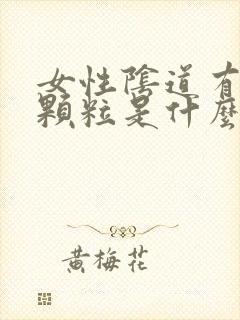 女性陰道有
顆粒是什麼
黃梅花